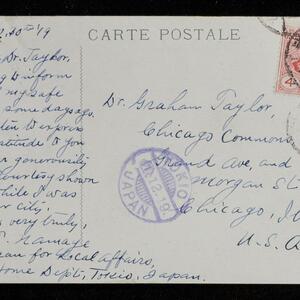 CARTE POSTALE
20th/19
Dr. Taylor,
to inform
my safe
some days ago.
to express
gratitude to you
generously
courtesy shown
while I was
city,
very truly,
Bureau for Local affairs,
Home Dept, Tokio, Japan.
Dr. Graham Taylor,
Chicago Commons,
Grand Ave, and
Morgan St
Chicago, Il
U.S.A
TOKIO
JAPAN